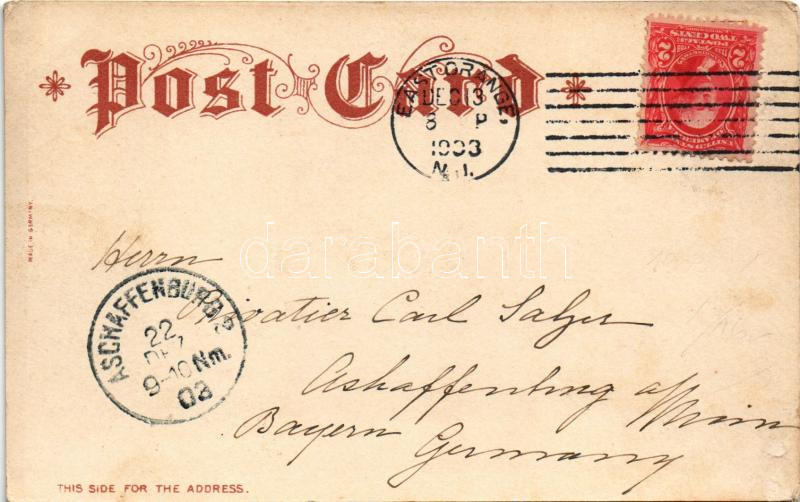 Post Card
EAST ORANGE,
DEC 13
8 P
1903
N.J.
2 POSTAGE TWO CENTS 2
MADE IN GERMANY.
darabanth
Herrn
Privatier Carl
Aschaffenburg a/
Main
Bayern
Germany
ASCHAFFENBURG 2
22
DEZ
9-10 Nm.
03
THIS SIDE FOR THE ADDRESS.